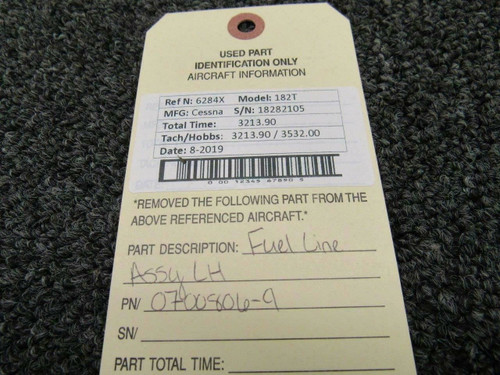 USED PART
IDENTIFICATION ONLY
AIRCRAFT INFORMATION
Ref N: 6284X Model: 182T
MFG: Cessna S/N: 18282105
Total Time: 3213.90
Tach/Hobbs: 3213.90 / 3532.00
Date: 8-2019
0 00 12345 67890 5
*REMOVED THE FOLLOWING PART FROM THE
ABOVE REFERENCED AIRCRAFT.*
PART DESCRIPTION: Fuel Line
Assy LH
PN/ 0700806-9
SN/
PART TOTAL TIME: